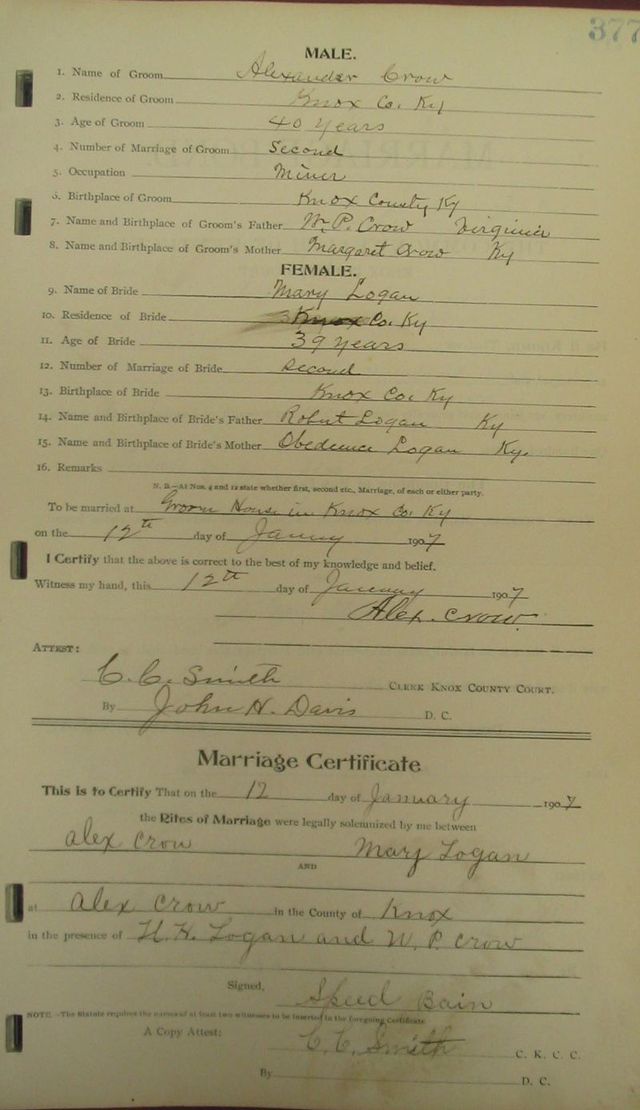 377
MALE.
1. Name of Groom Alexander Crow
2. Residence of Groom Knox Co. Ky
3. Age of Groom 40 years
4. Number of Marriage of Groom Second
5. Occupation Miner
6. Birthplace of Groom Knox County Ky
7. Name and Birthplace of Groom's Father W. P. Crow Virginia
8. Name and Birthplace of Groom's Mother Margaret Crow Ky
FEMALE.
9. Name of Bride Mary Logan
10. Residence of Bride Knox Co. Ky
11. Age of Bride 39 years
12. Number of Marriage of Bride Second
13. Birthplace of Bride Knox Co. Ky
14. Name and Birthplace of Bride's Father Robert Logan Ky
15. Name and Birthplace of Bride's Mother Obedience Logan Ky.
16. Remarks
N. B.—At Nos. 4 and 12 state whether first, second etc., Marriage, of each or either party.
To be married at Groom House in Knox Co. Ky
on the 12th day of Januy 1907
I Certify that the above is correct to the best of my knowledge and belief.
Witness my hand, this 12th day of January 1907
Alex. Crow.
ATTEST:
C. C. Smith CLERK KNOX COUNTY COURT.
By John H. Davis D. C.
Marriage Certificate
This is to Certify That on the 12 day of January 1907
the Rites of Marriage were legally solemnized by me between
alex Crow Mary Logan
AND
at alex Crow in the County of Knox
in the presence of H. H. Logan and W. P. Crow
Signed, Speed Bain
NOTE.—The Statute requires the names of at least two witnesses to be inserted in the foregoing Certificate
A Copy Attest: C. C. Smith C. K. C. C.
By D. C.